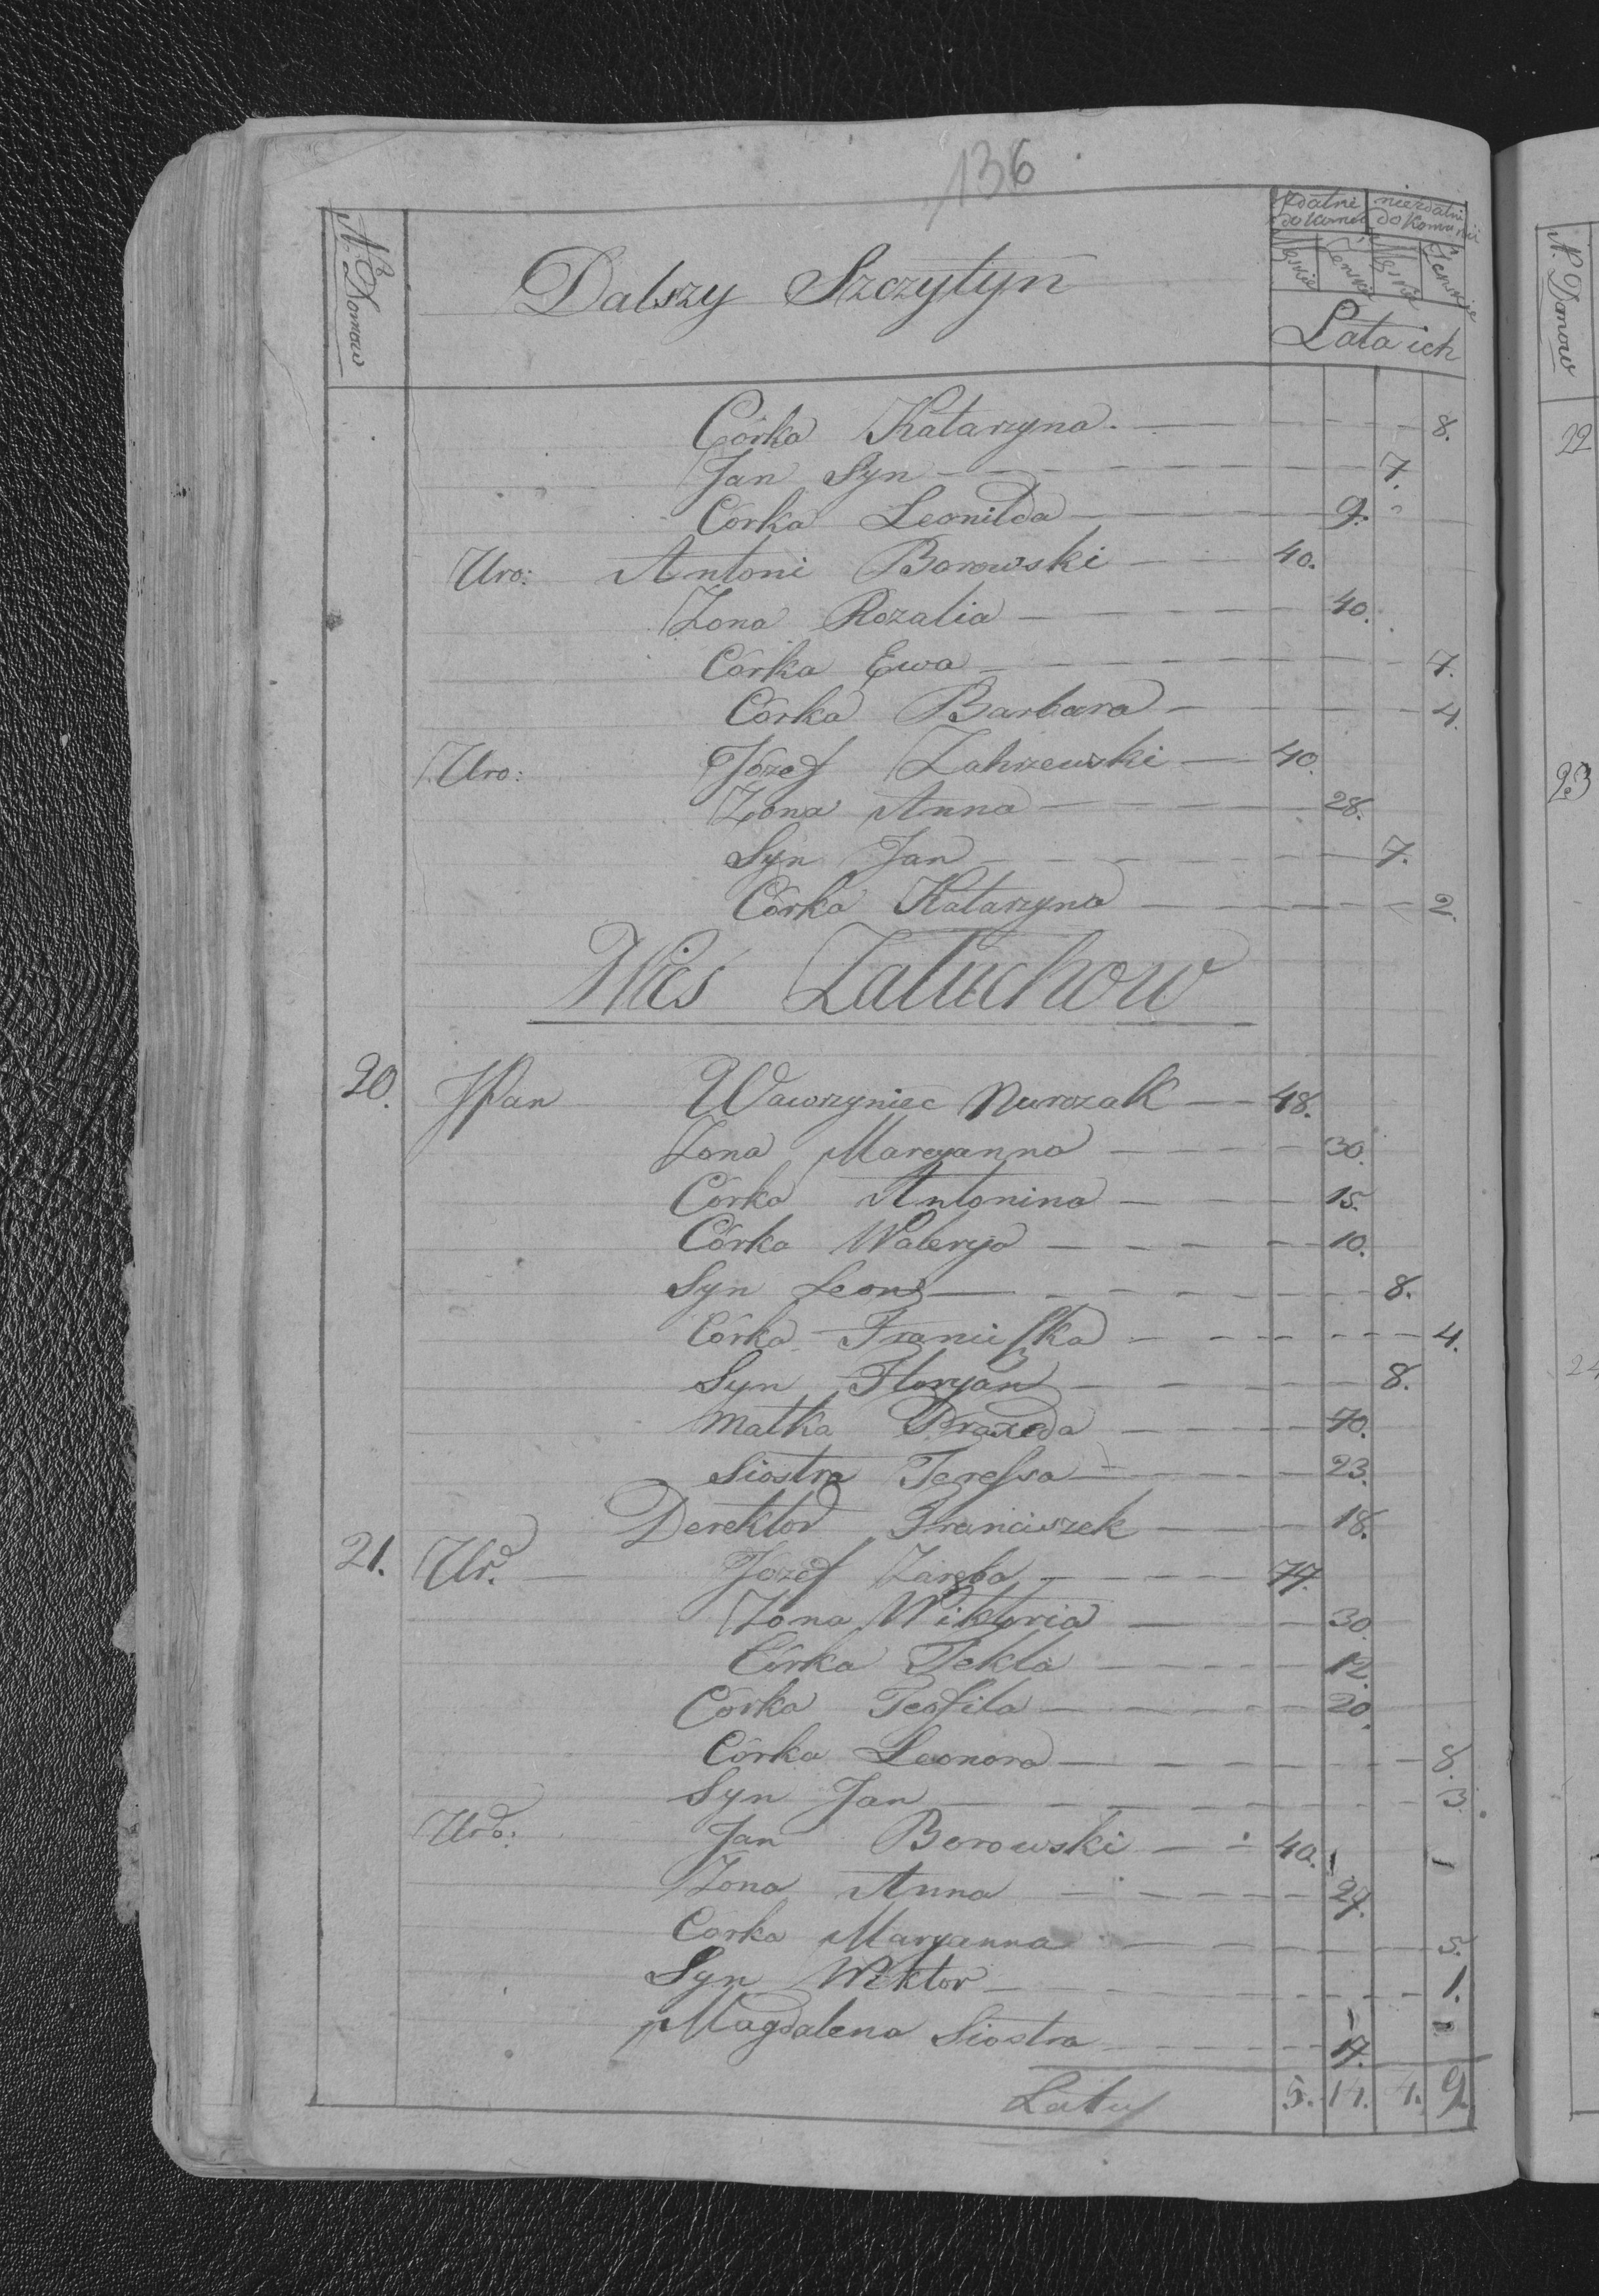 136
Nro Domow
Dalszy Szczytyn
zdatni do komu
niezdatni do komunii
Męskie Żeńskie Męskie Żeńskie
Lata ich
Córka Katarzyna 8.
Jan Syn 7.
Córka Leonilda 9.
Uro: Antoni Borowski 40.
Żona Rozalia 40.
Córka Ewa 7.
Córka Barbara 4.
Uro: Józef Zakrzewski 40.
Żona Anna 28.
Syn Jan 7.
Córka Katarzyna 2.
Wieś Załuchow
20. JPan Wawrzyniec Nurozak 48.
Żona Maryanna 30.
Córka Antonina 15.
Córka Walerya 10.
Syn Leon 8.
Córka Franciska 4.
Syn Floryan 8.
Matka Praxeda 70.
Siostra Teressa 23.
Derektor Franciszek 18.
21. Uro. Józef Zaręba 77.
Żona Wiktoria 30.
Córka Tekla 12.
Córka Teofila 20.
Córka Leonora 8.
Syn Jan 3.
Uro: Jan Borowski 40.
Żona Anna 27.
Corka Maryanna 5.
Syn Wiktor 1.
Magdalena Siostra 17.
Latus 5. 14. 4. 9.
N. Domow
22
23
24